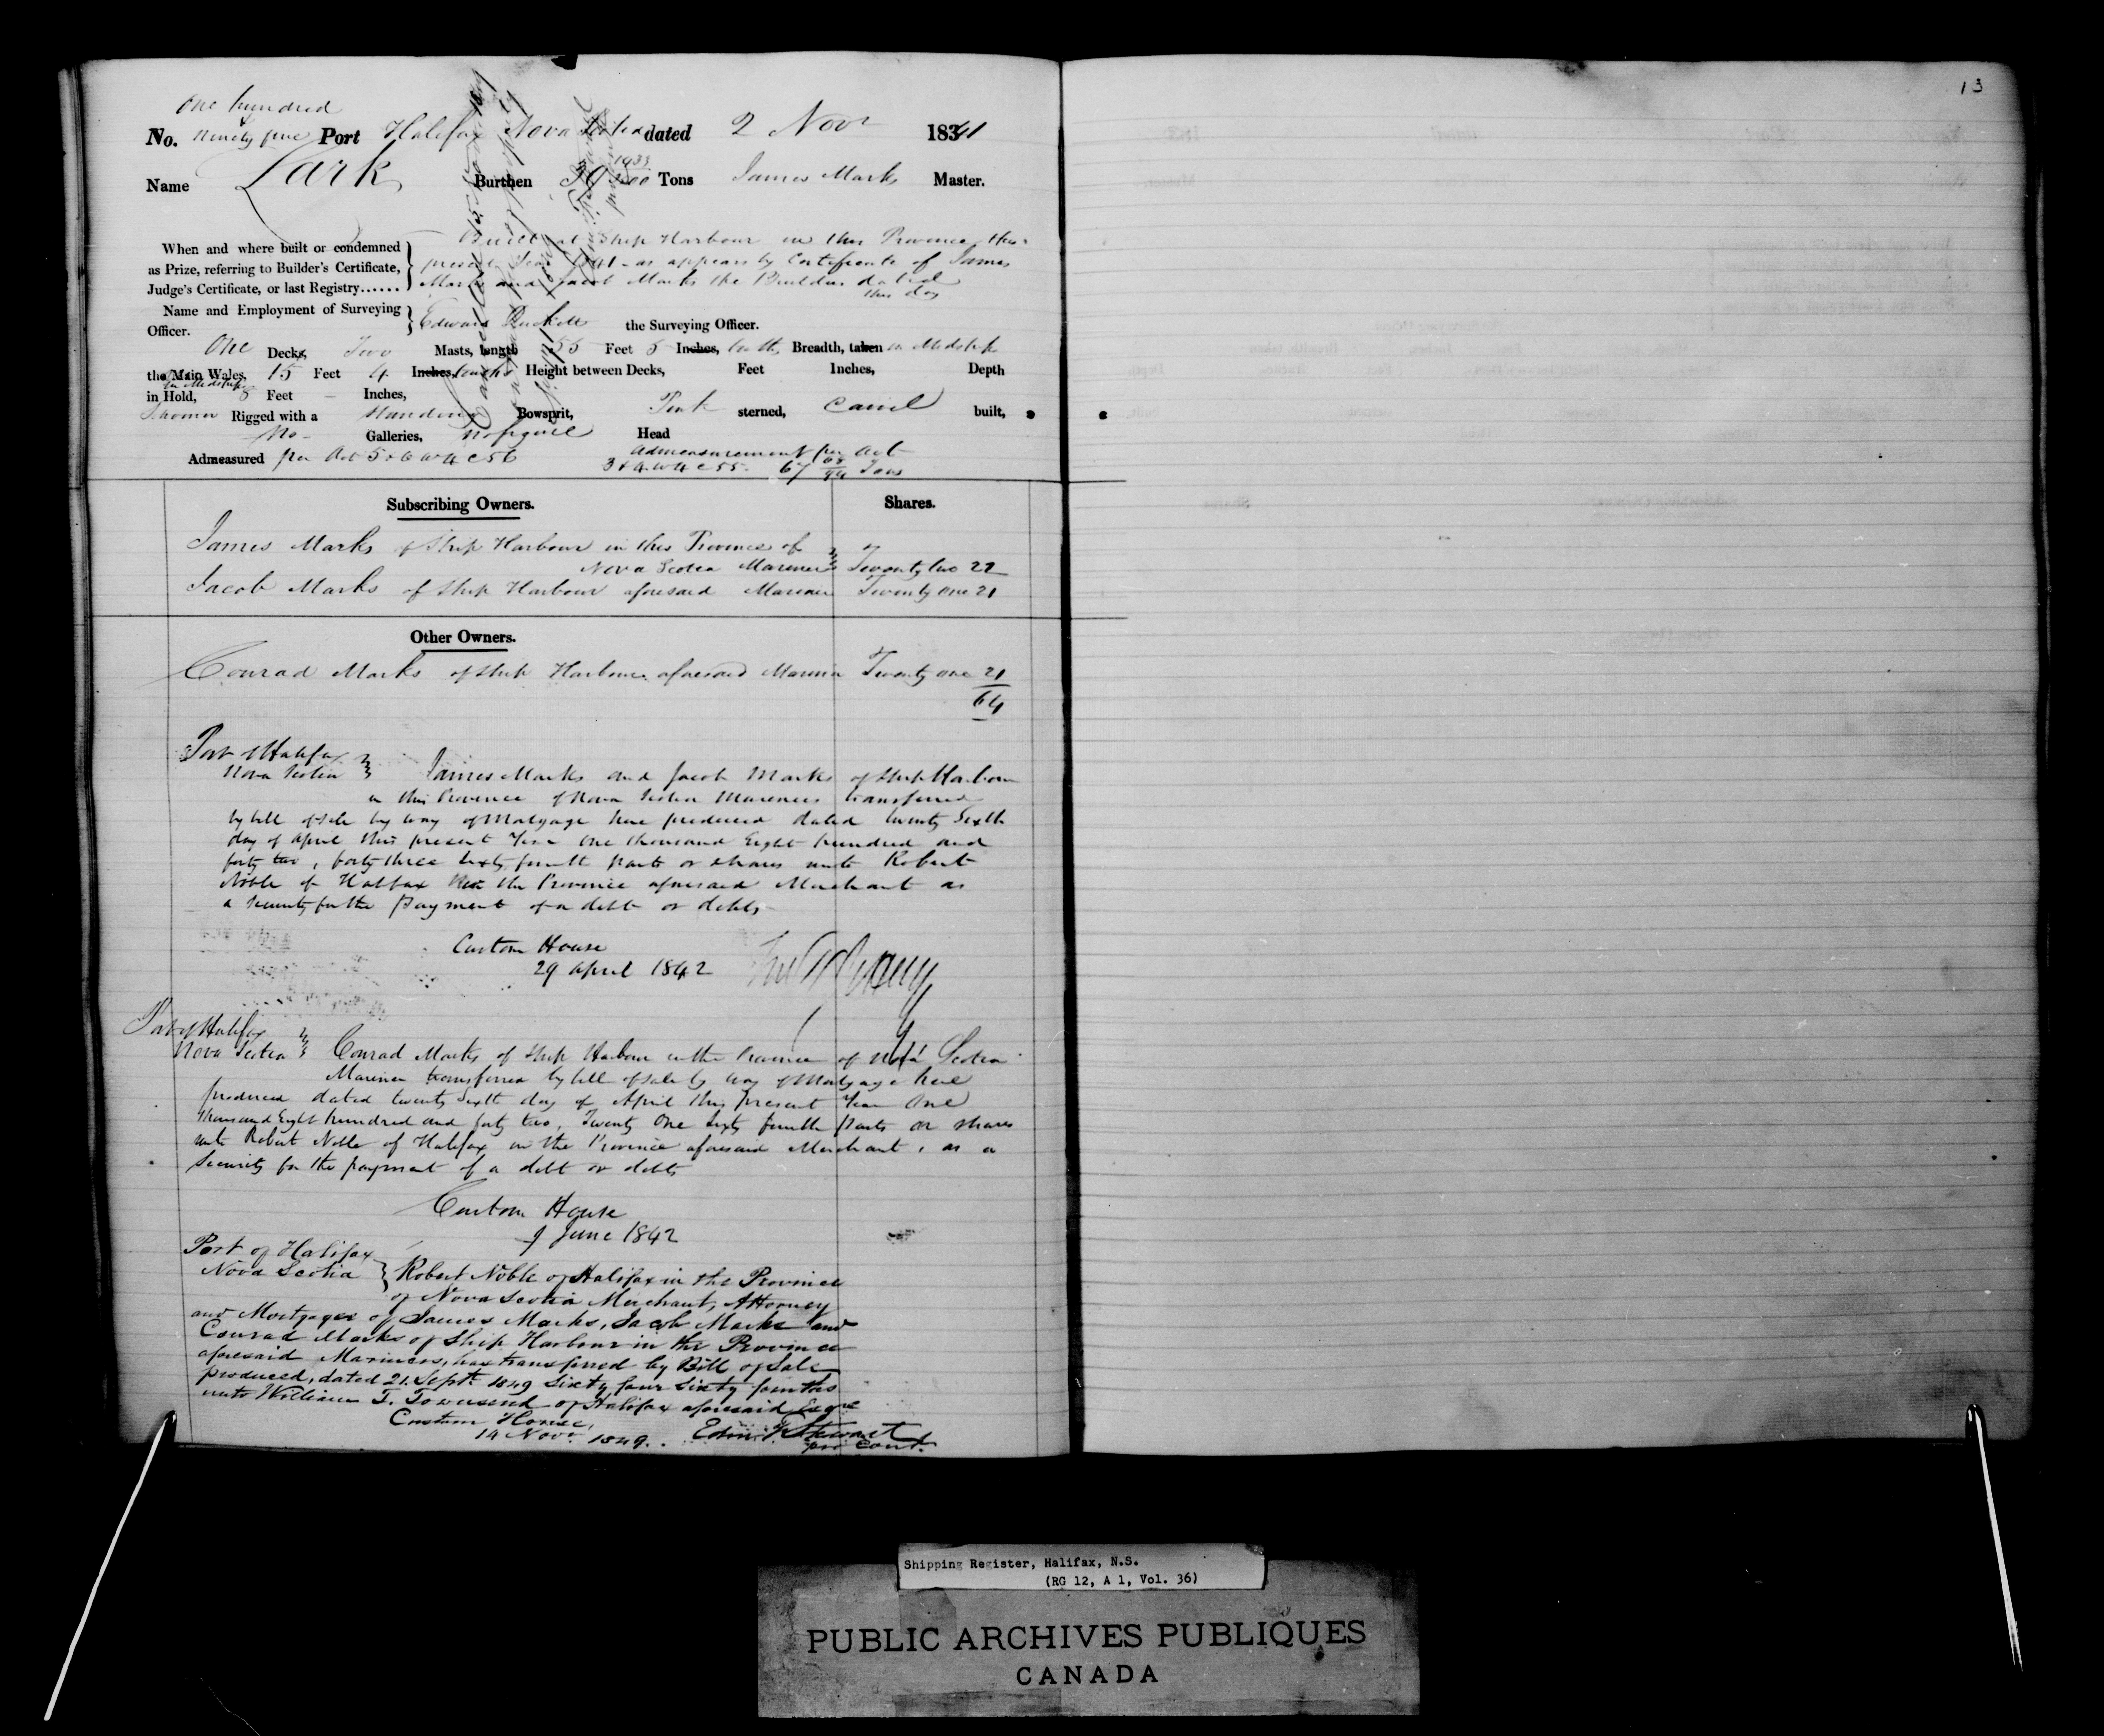 13
One hundred
No. & ninety five Port Halifax Nova Scotia dated 2 Novr 1841
Name Lark Burthen 39 1933/3500 Tons James Marks Master.
When and where built or condemned as Prize, referring to Builder's Certificate, Judge's Certificate, or last Registry......
Built at Ship Harbour in this Province this
present Year 1841 as appears by Certificate of James
Marks and Jacob Marks the Builders dated
this day
Name and Employment of Surveying Officer.
Edward the Surveying Officer.
One Decks, Two Masts, length 55 Feet 5 Inches, tenths, Breadth, taken in Midships
the Main Wales, 15 Feet 4 Inches, tenths Height between Decks, Feet Inches, Depth
in Midships
in Hold, 8 Feet – Inches,
Schooner Rigged with a standing Bowsprit, Pink sterned, Carvel built,
No Galleries, no figure Head
Admeasured per Act 5 & 6 W 4 C 56 Admeasurement per Act
3 & 4 W 4 C 55. 67 Tons
Subscribing Owners. Shares.
James Marks of Ship Harbour in this Province of
Nova Scotia Mariner Twenty two 22
Jacob Marks of Ship Harbour aforesaid Mariner Twenty one 21
Other Owners.
Conrad Marks of Ship Harbour aforesaid Mariner Twenty one 21
64
Port of Halifax
Nova Scotia James Marks and Jacob Marks of Ship Harbour
in this Province of Nova Scotia Mariners transferred
by bill of sale by way of Mortgage here produced dated twenty sixth
day of April this present Year One thousand Eight hundred and
forty two, forty three sixty fourth parts or shares unto Robert
Noble of Halifax in the Province aforesaid Merchant as
a security for the payment of a debt or debts
Custom House
29 April 1842
Port of Halifax
Nova Scotia Conrad Marks of Ship Harbour in the Province of Nova Scotia
Mariner transferred by bill of sale by way of Mortgage here
produced dated twenty sixth day of April this present Year One
thousand Eight hundred and forty two, Twenty One Sixty fourth parts or shares
unto Robert Noble of Halifax in the Province aforesaid Merchant, as a
Security for the payment of a debt or debts
Custom House
9 June 1842
Port of Halifax
Nova Scotia Robert Noble of Halifax in the Province
of Nova Scotia Merchant, Attorney
and Mortgagee of James Marks, Jacob Marks and
Conrad Marks of Ship Harbour in the Province
aforesaid Mariners, has transferred by Bill of Sale
produced, dated 21. Septr. 1849 Sixty four Sixty fourths
unto William T. Townsend of Halifax aforesaid Esqre
Custom House,
14 Novr. 1849. Stewart
pro Cont.
Shipping Register, Halifax, N.S.
(RG 12, A 1, Vol. 36)
PUBLIC ARCHIVES PUBLIQUES
CANADA